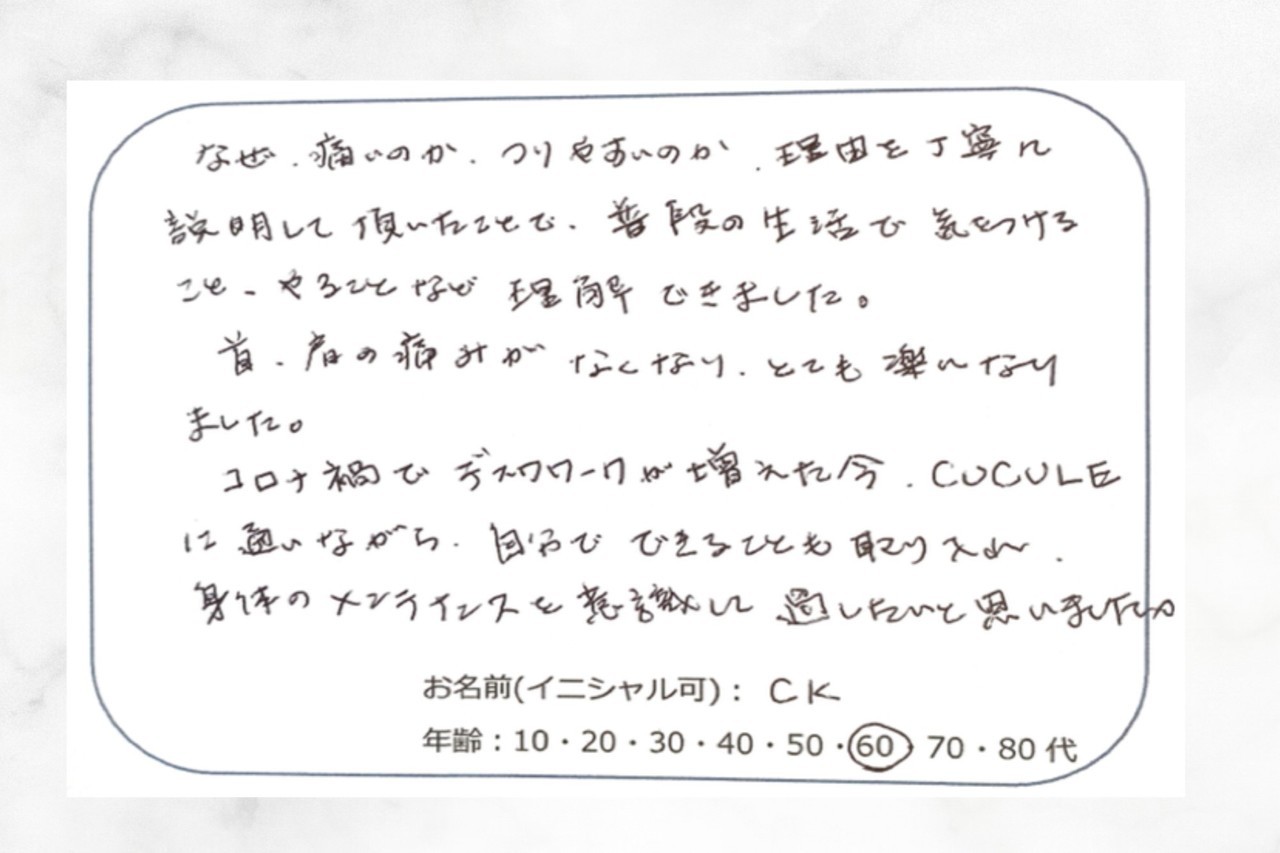 なぜ、痛いのか、つりやすいのか、理由を丁寧に
説明して頂いたことで、普段の生活で気をつける
こと、やることなど理解できました。
首、肩の痛みがなくなり、とても楽になり
ました。
コロナ禍でデスクワークが増えた今、CUCULE
に通いながら、自分でできることも取り入れ、
身体のメンテナンスを意識して過したいと思いました。
お名前(イニシャル可)： CK
年齢：10・20・30・40・50・60・70・80 代